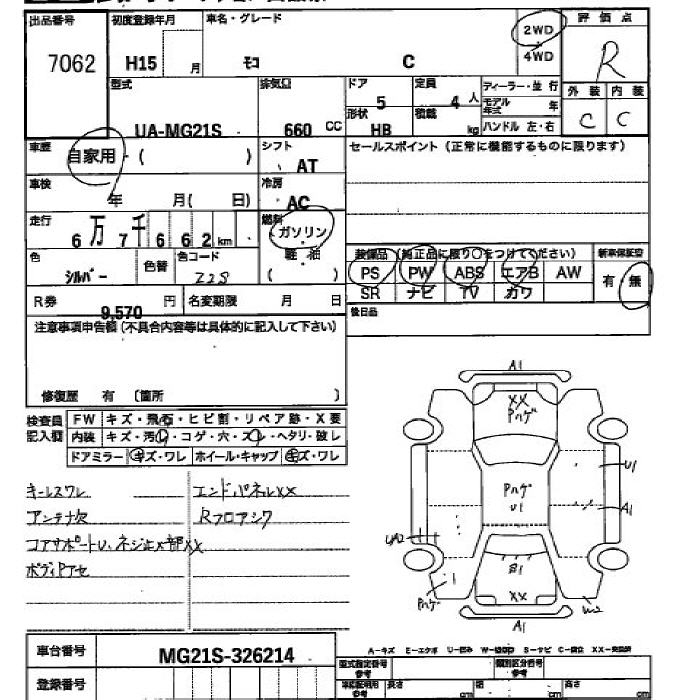 出品番号 初度登録年月 車名・グレード 2WD 4WD 評価点
7062 H15 月 モコ C R
型式 排気量 ドア 定員 ディーラー・並行 外装 内装
UA-MG21S 660 CC 5 4 人 モデル年式 年 C C
形状 積載
HB kg ハンドル 左・右
車歴 自家用・( ) シフト AT セールスポイント(正常に機能するものに限ります)
車検 年 月( 日) 冷房 AC
走行 6万7千662km 燃料 ガソリン
軽油
( )
色 シルバー 色替 色コード Z2S
装備品(純正品に限り○をつけてください) 新車保証書
PS PW ABS エアB AW 有・無
SR ナビ TV カワ
R券 9,570 円 名変期限 月 日 後日品
注意事項申告欄(不具合内容等は具体的に記入して下さい)
修復歴 有 〔箇所 〕
検査員記入欄 FW キズ・飛石・ヒビ割・リペア跡・X要
内装 キズ・汚レ・コゲ・穴・スレ・ヘタリ・破レ
ドアミラー キズ・ワレ ホイール・キャップ キズ・ワレ
キーレスワレ エンドパネルXX
アンテナ欠 Rフロアシワ
コアサポートU、ネジ止メ部XX
ボディPアセ
A1
XX
Pハゲ
U1
Pハゲ
U1
A1
UA2
B1
Pハゲ
XX
A1
車台番号 MG21S-326214
登録番号
A-キズ E-エクボ U-凹み W-波 S-サビ C-腐食 XX-交換済
型式指定番号 参考 類別区分番号 参考
車検証明用 参考 長さ cm 幅 cm 高さ cm